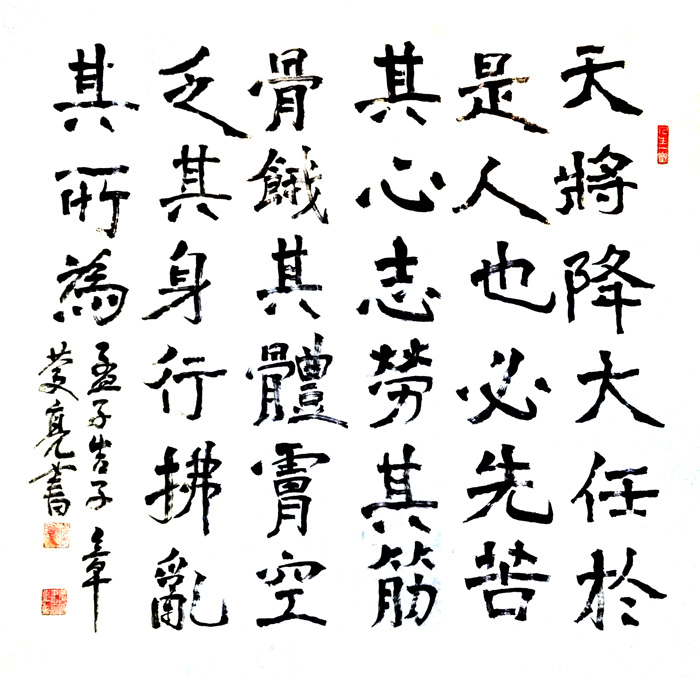 天將降大任於
是人也必先苦
其心志勞其筋
骨餓其體膚空
乏其身行拂亂
其所為
孟子告子章
亮書